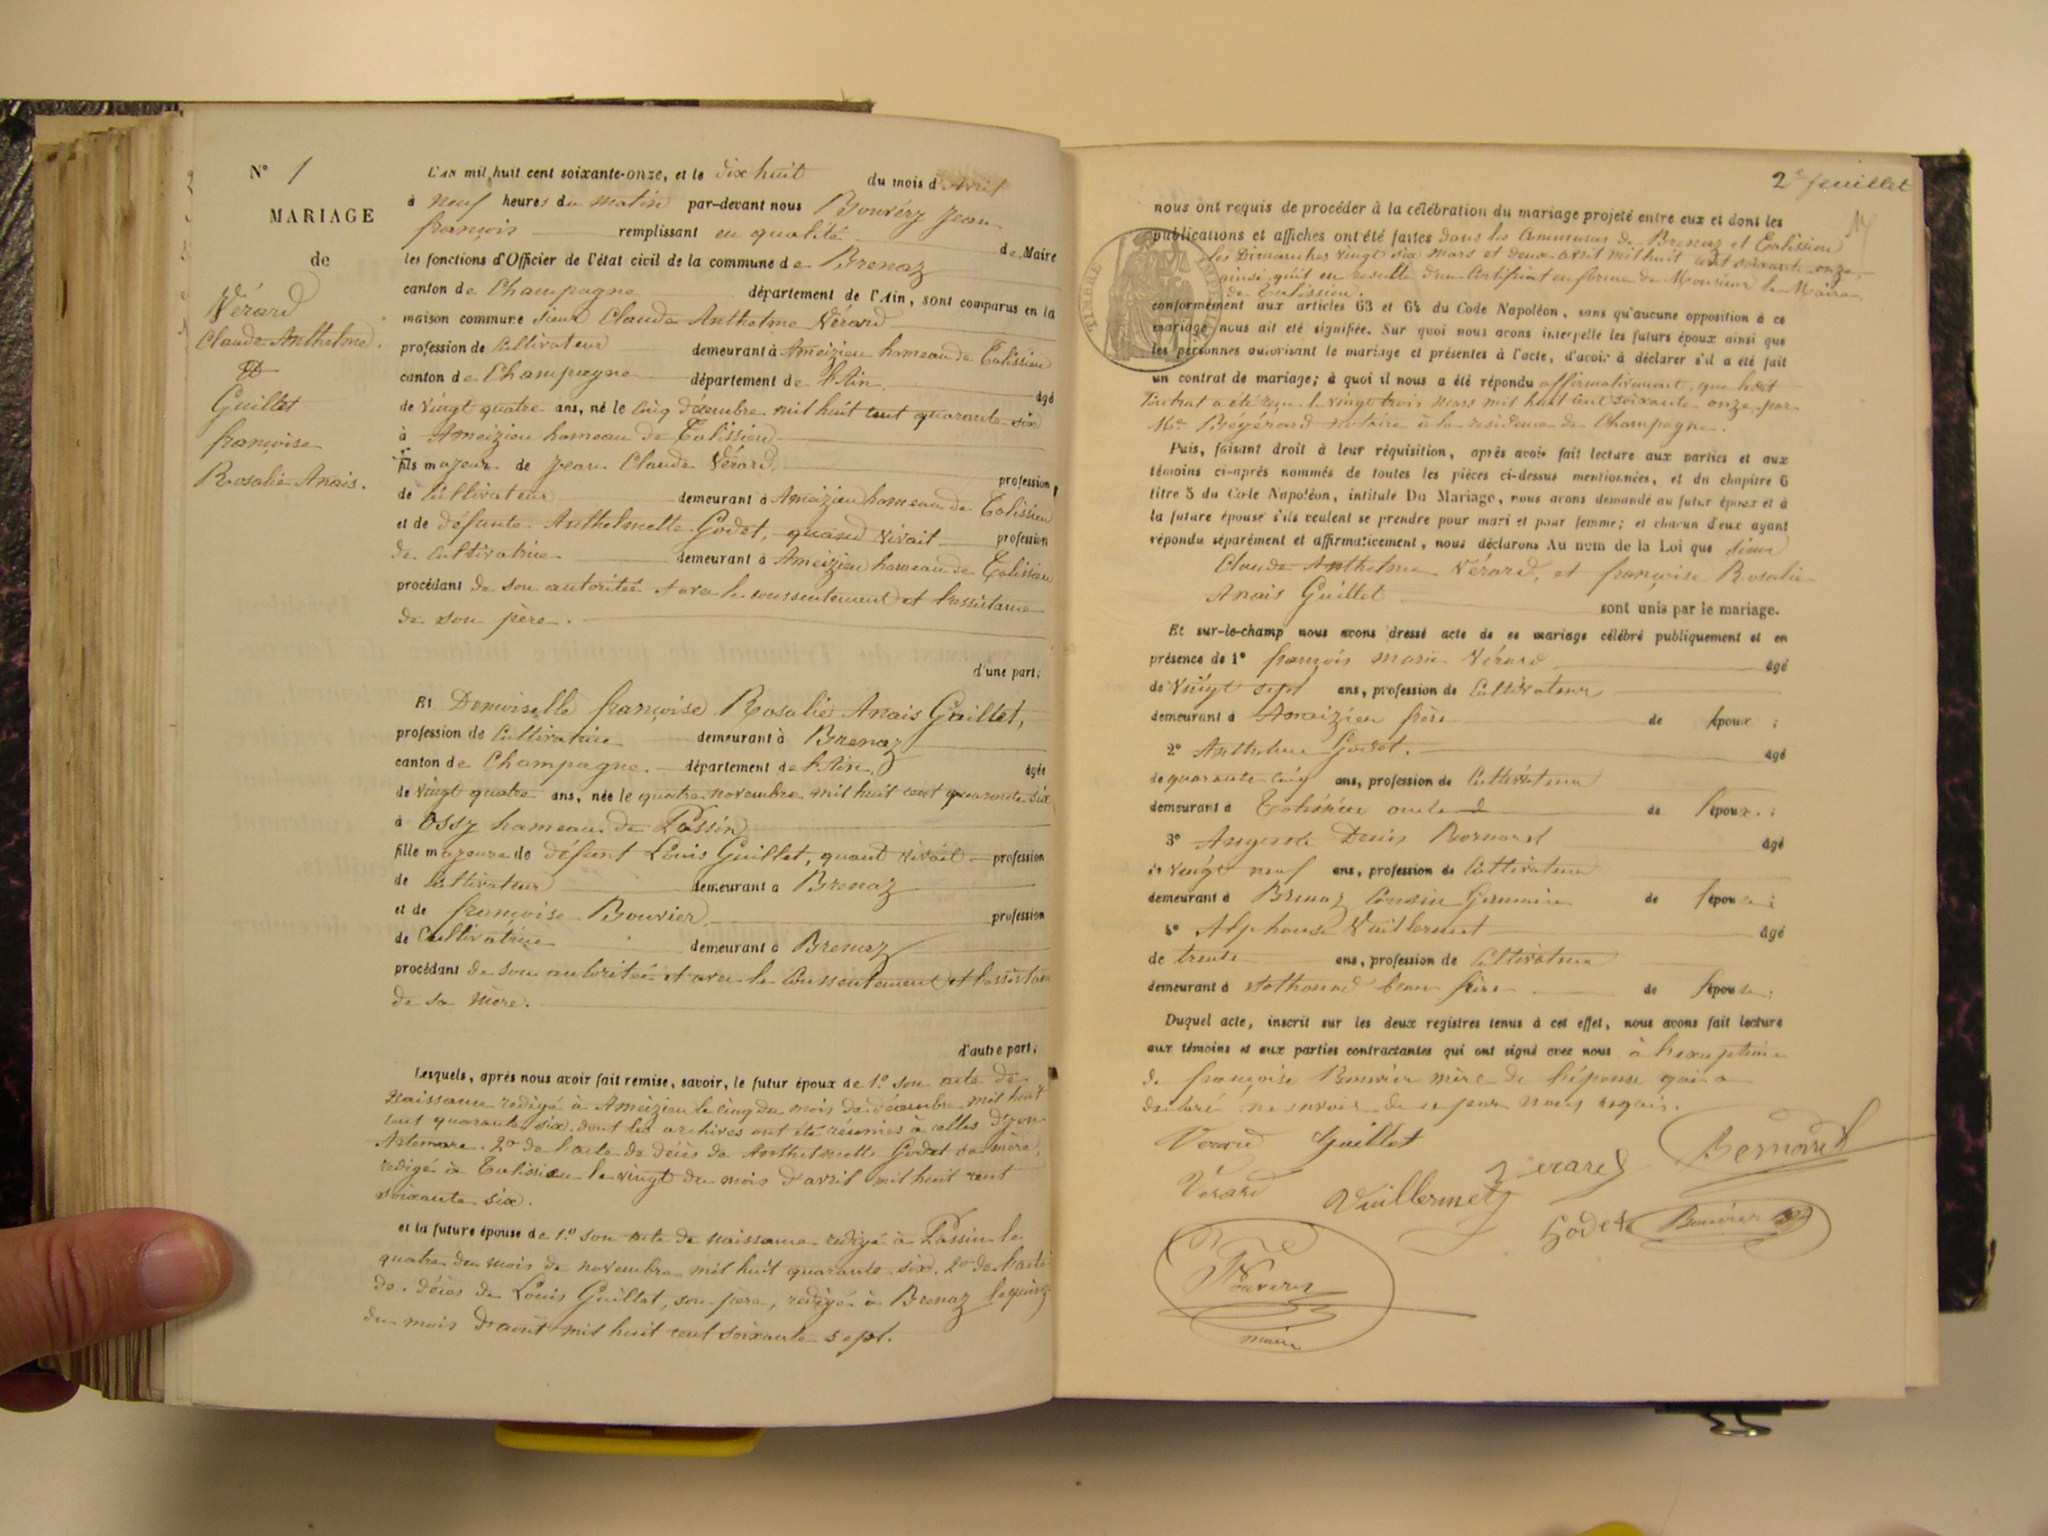 N° 1
MARIAGE
de
Vérard
Claude Anthelme.
Et
Guillet
françoise
Rosalie Anais.
L'an mil huit cent soixante-onze, et le dix huit du mois d'Avril
à neuf heures du matin par-devant nous Bouvery Jean
françois remplissant en qualité de Maire
les fonctions d'Officier de l'état civil de la commune de Brenaz
canton de Champagne département de l'Ain, sont comparus en la
maison commune sieur Claude Anthelme Vérard
profession de Cultivateur demeurant à Ameizieu hameau de Talissieu
canton de Champagne département de l'Ain âgé
de vingt quatre ans, né le cinq décembre mil huit cent quarante six
à Ameizieu hameau de Talissieu
fils majeur de Jean Claude Vérard, profession
de Cultivateur demeurant à Ameizieu hameau de Talissieu
et de défunte Anthelmette Godet, quand vivait profession
de Cultivatrice demeurant à Ameizieu hameau de Talissieu
procédant de son autorité et avec le consentement et l'assistance
de son père.
d'une part;
Et Demoiselle françoise Rosalie Anais Guillet,
profession de Cultivatrice demeurant à Brenaz
canton de Champagne. département de l'Ain, âgée
de vingt quatre ans, née le quatre novembre mil huit cent quarante six
à Ossy hameau de Passin
fille majeure de défunt Louis Guillet, quant vivait profession
de Cultivateur demeurant à Brenaz
et de françoise Bouvier profession
de Cultivatrice demeurant à Brenaz
procédant de son autorité et avec le consentement et l'assistance
de sa mère.
d'autre part;
Lesquels, après nous avoir fait remise, savoir, le futur époux de 1.° son acte de
naissance redigé à Ameizieu le cinq du mois de décembre mil huit
cent quarante six, dont les archives ont été réunies à celles d'yon
Artemare. 2° de l'acte de décès de Anthelmette Godet sa mère,
redigé à Talissieu le vingt du mois d'avril mil huit cent
soixante six.
et la future épouse de 1.° son acte de naissance redigé à Passin le
quatre du mois de novembre mil huit quarante six. 2° de l'acte
de décès de Louis Guillet, son père, redigé à Brenaz le quinze
du mois d'août mil huit cent soixante sept.
2e feuillet
nous ont requis de procéder à la célébration du mariage projeté entre eux et dont les
publications et affiches ont été faites dans les Communes de Brenaz et Talissieu
les Dimanches vingt six mars et deux avril mil huit cent soixante onze,
ainsi qu'il en resulte d'un Certificat en forme de Monsieur le Maire
de Talissieu.
TIMBRE
conformément aux articles 63 et 64 du Code Napoléon, sans qu'aucune opposition à ce
mariage nous ait été signifiée. Sur quoi nous avons interpellé les futurs époux ainsi que
les personnes autorisant le mariage et présentes à l'acte, d'avoir à déclarer s'il a été fait
un contrat de mariage; à quoi il nous a été répondu affirmativement, que le dit
Contrat a été reçu le vingt trois mars mil huit cent soixante onze par
Me notaire à la residence de Champagne.
Puis, faisant droit à leur réquisition, après avoir fait lecture aux parties et aux
témoins ci-après nommés de toutes les pièces ci-dessus mentionnées, et du chapitre 6
titre 5 du Code Napoléon, intitulé Du Mariage, nous avons demandé au futur époux et à
la future épouse s'ils veulent se prendre pour mari et pour femme; et chacun d'eux ayant
répondu séparément et affirmativement, nous déclarons Au nom de la Loi que sieur
Claude Anthelme Vérard, et françoise Rosalie
Anais Guillet sont unis par le mariage.
Et sur-le-champ nous avons dressé acte de ce mariage célébré publiquement et en
présence de 1° françois marie Vérard âgé
de vingt sept ans, profession de Cultivateur
demeurant à Ameizieu frère de l'époux ;
2° Anthelme Godet. âgé
de quarante cinq ans, profession de Cultivateur
demeurant à Talissieu oncle de l'époux ;
3° Denis Bernard âgé
de vingt neuf ans, profession de Cultivateur
demeurant à Brenaz Cousin Germain de l'épouse ;
4° Alphonse Vuillermet âgé
de trente ans, profession de Cultivateur
demeurant à Sothonod beau frère de l'épouse ;
Duquel acte, inscrit sur les deux registres tenus à cet effet, nous avons fait lecture
aux témoins et aux parties contractantes qui ont signé avec nous à l'exception
de françoise Bouvier mère de l'épouse qui a
declaré ne savoir de ce par nous requis.
Verard Guillet Bernard
Vérard Vuillermet Verard
Godet
Bouvery
maire